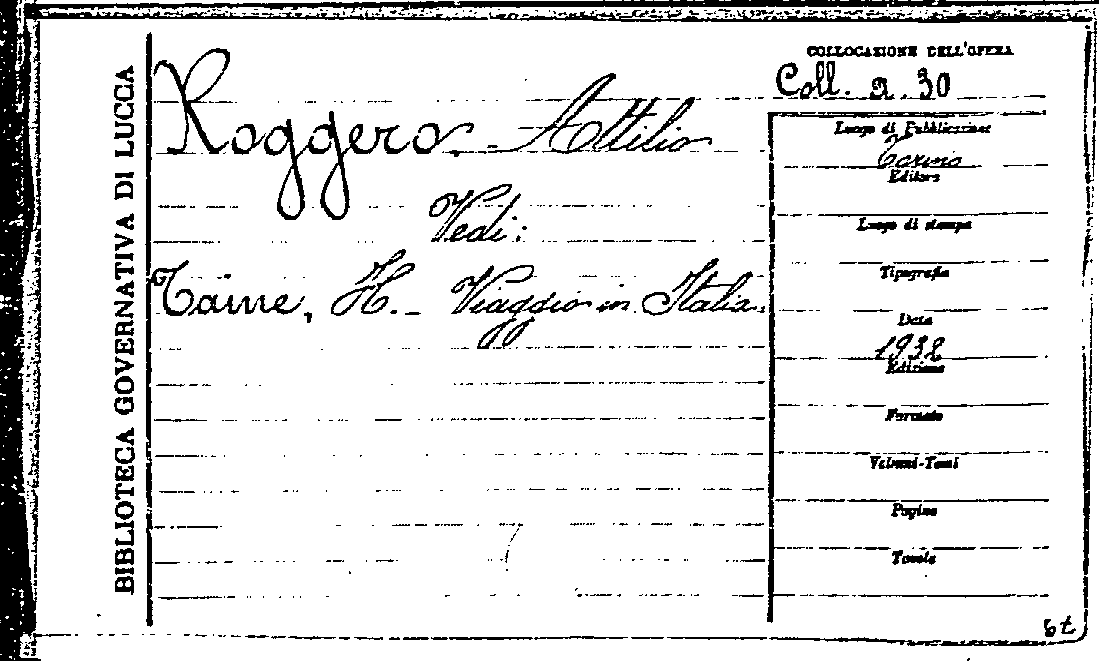 BIBLIOTECA GOVERNATIVA DI LUCCA
Roggero. Attilio
Vedi:
Taine, H. - Viaggio in Italia.
COLLOCAZIONE DELL'OPERA
Coll. a. 30
Luogo di Pubblicazione
Torino
Editore
Luogo di stampa
Tipografia
Data
1932
Edizione
Formato
Volumi-Tomi
Pagine
Tavole